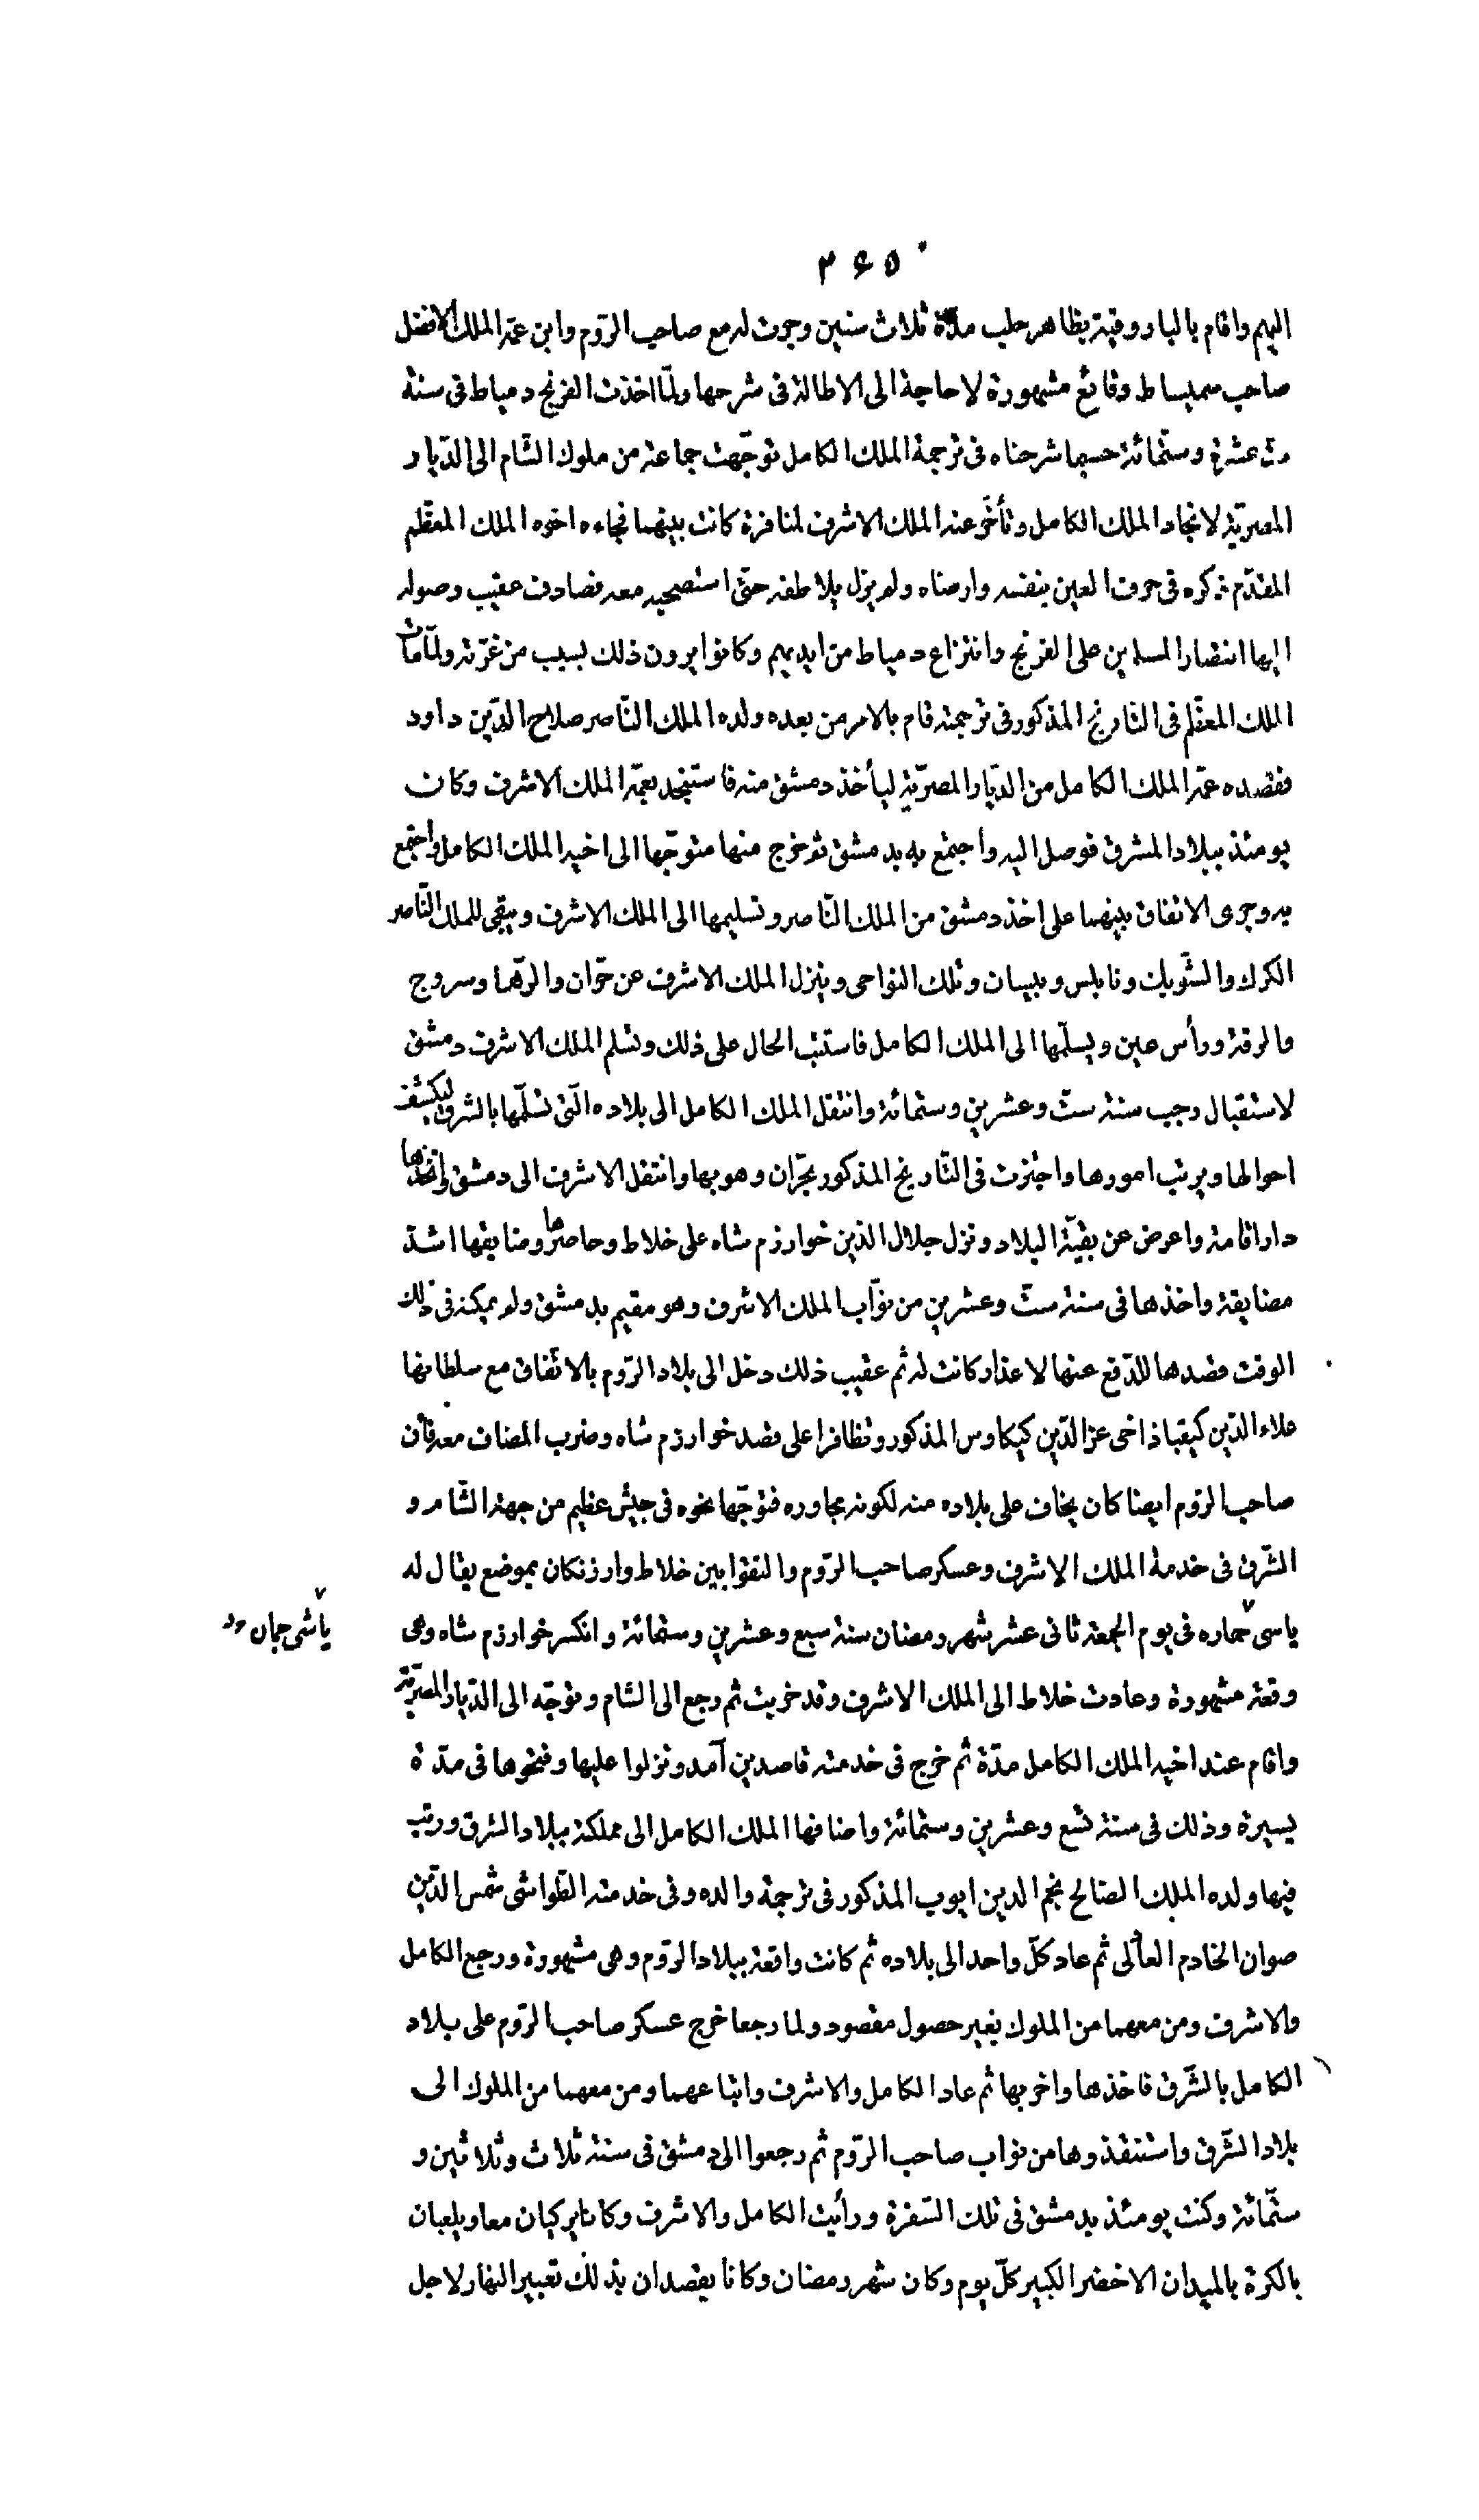 ٣٤٥
اليهم واقام بالياروقية بظاهر حلب مدّة ثلاث سنين وجرت له مع صاحب الرّوم وابن عمّه الملك الافضل
صاحب سميساط وقائع مشهورة لا حاجة الى الاطالة فى شرحها ولمّا اخذت الفرنج دمياط فى سنة
ستّ عشرة وستّمائة حسبما شرحناه فى ترجمة الملك الكامل توجّهت جماعة من ملوك الشّام الى الدّيار
المصريّة لانجاد الملك الكامل وتأخّر عنه الملك الاشرف لمنافرة كانت بينهما فجاءه اخوه الملك المعظّم
المقدّم ذكره فى حرف العين بنفسه وارضاه ولم يزل يلاطفه حتّى استصحبه معه فصادف عقيب وصوله
اليها انتصار المسلمين على الفرنج وانتزاع دمياط من ايديهم وكانوا يرون ذلك بسبب من غرّته ولمّا مات
الملك المعظّم فى التاريخ المذكور فى ترجمته قام بالامر من بعده ولده الملك النّاصر صلاح الدّين داود
فقصده عمّه الملك الكامل من الدّيار المصريّة ليأخذ دمشق منه فاستنجد بعمّه الملك الاشرف وكان
يومئذ ببلاد المشرق فوصل اليه واجتمع به بدمشق ثم خرج منها متوجّها الى اخيه الملك الكامل واجتمع
به وجرى الاتفاق بينهما على اخذ دمشق من الملك النّاصر وتسليمها الى الملك الاشرف ويبقى للملك النّاصر
الكرك والشّوبك ونابلس وبيسان وتلك النواحى وينزل الملك الاشرف عن حرّان والرّها وسروج
والرقة ورأس عين ويسلّمها الى الملك الكامل فاستتب الحال على ذلك وتسلم الملك الاشرف دمشق
لاستقبال رجب سنة ستّ وعشرين وستمائة وانتقل الملك الكامل الى بلاده الّتى تسلّمها بالشرق ليكشف
احوالها ويرتب امورها واجتزت فى التّاريخ المذكور بحرّان وهو بها وانتقل الاشرف الى دمشق واتخذها
دار اقامة واعرض عن بقيّة البلاد ونزل جلال الدّين خوارزم شاه على خلاط وحاصرها وضايقها اشد
مضايقة واخذها فى سنة ستّ وعشرين من نوّاب الملك الاشرف وهو مقيم بدمشق ولم يمكنه فى ذلك
الوقت قصدها للدّفع عنها لاعذار كانت له ثم عقيب ذلك دخل الى بلاد الرّوم بالاتّفاق مع سلطانها
علاء الدّين كيقباذ اخى عز الدّين كيكاوس المذكور وتظافرا على قصد خوارزم شاه وضرب المصاف معه فان
صاحب الرّوم ايضا كان يخاف على بلاده منه لكونه مجاوره فتوجّها نحوه فى جيش عظيم من جهة الشّام و
الشّرق فى خدمة الملك الاشرف وعسكر صاحب الرّوم والتقوا بين خلاط وارزنكان بموضع يقال له
ياسى حماره فى يوم الجمعة ثانى عشر شهر رمضان سنة سبع وعشرين وستمائة وانكسر خوارزم شاه وهى
ياشى جمان
وقعة مشهورة وعادت خلاط الى الملك الاشرف وقد خربت ثم رجع الى الشام وتوجّه الى الدّيار المصريّة
واقام عند اخيه الملك الكامل مدّة ثم خرج فى خدمته قاصدين آمد ونزلوا عليها وفتحوها فى مدّة
يسيرة وذلك فى سنة تسع وعشرين وستمائة واضافها الملك الكامل الى مملكته ببلاد الشرق ورتب
فيها ولده الملك الصالح نجم الدين ايوب المذكور فى ترجمة والده وفى خدمته الطّواشى شمس الدّين
صوان الخادم العادلى ثم عاد كلّ واحد الى بلاده ثم كانت واقعة ببلاد الرّوم وهى مشهورة ورجع الكامل
والاشرف ومن معهما من الملوك بغير حصول مقصود ولما رجعا خرج عسكر صاحب الرّوم على بلاد
الكامل بالشّرق فاخذها واخربها ثم عاد الكامل والاشرف واتباعهما ومن معهما من الملوك الى
بلاد الشّرق واستنقذوها من نواب صاحب الرّوم ثم رجعوا الى دمشق فى سنة ثلاث وثلاثين و
ستّمائة وكنت يومئذ بدمشق فى تلك السّفرة ورأيت الكامل والاشرف وكانا يركبان معا ويلعبان
بالكرة بالميدان الاخضر الكبير كلّ يوم وكان شهر رمضان وكانا يقصدان بذلك تعبير النهار لاجل